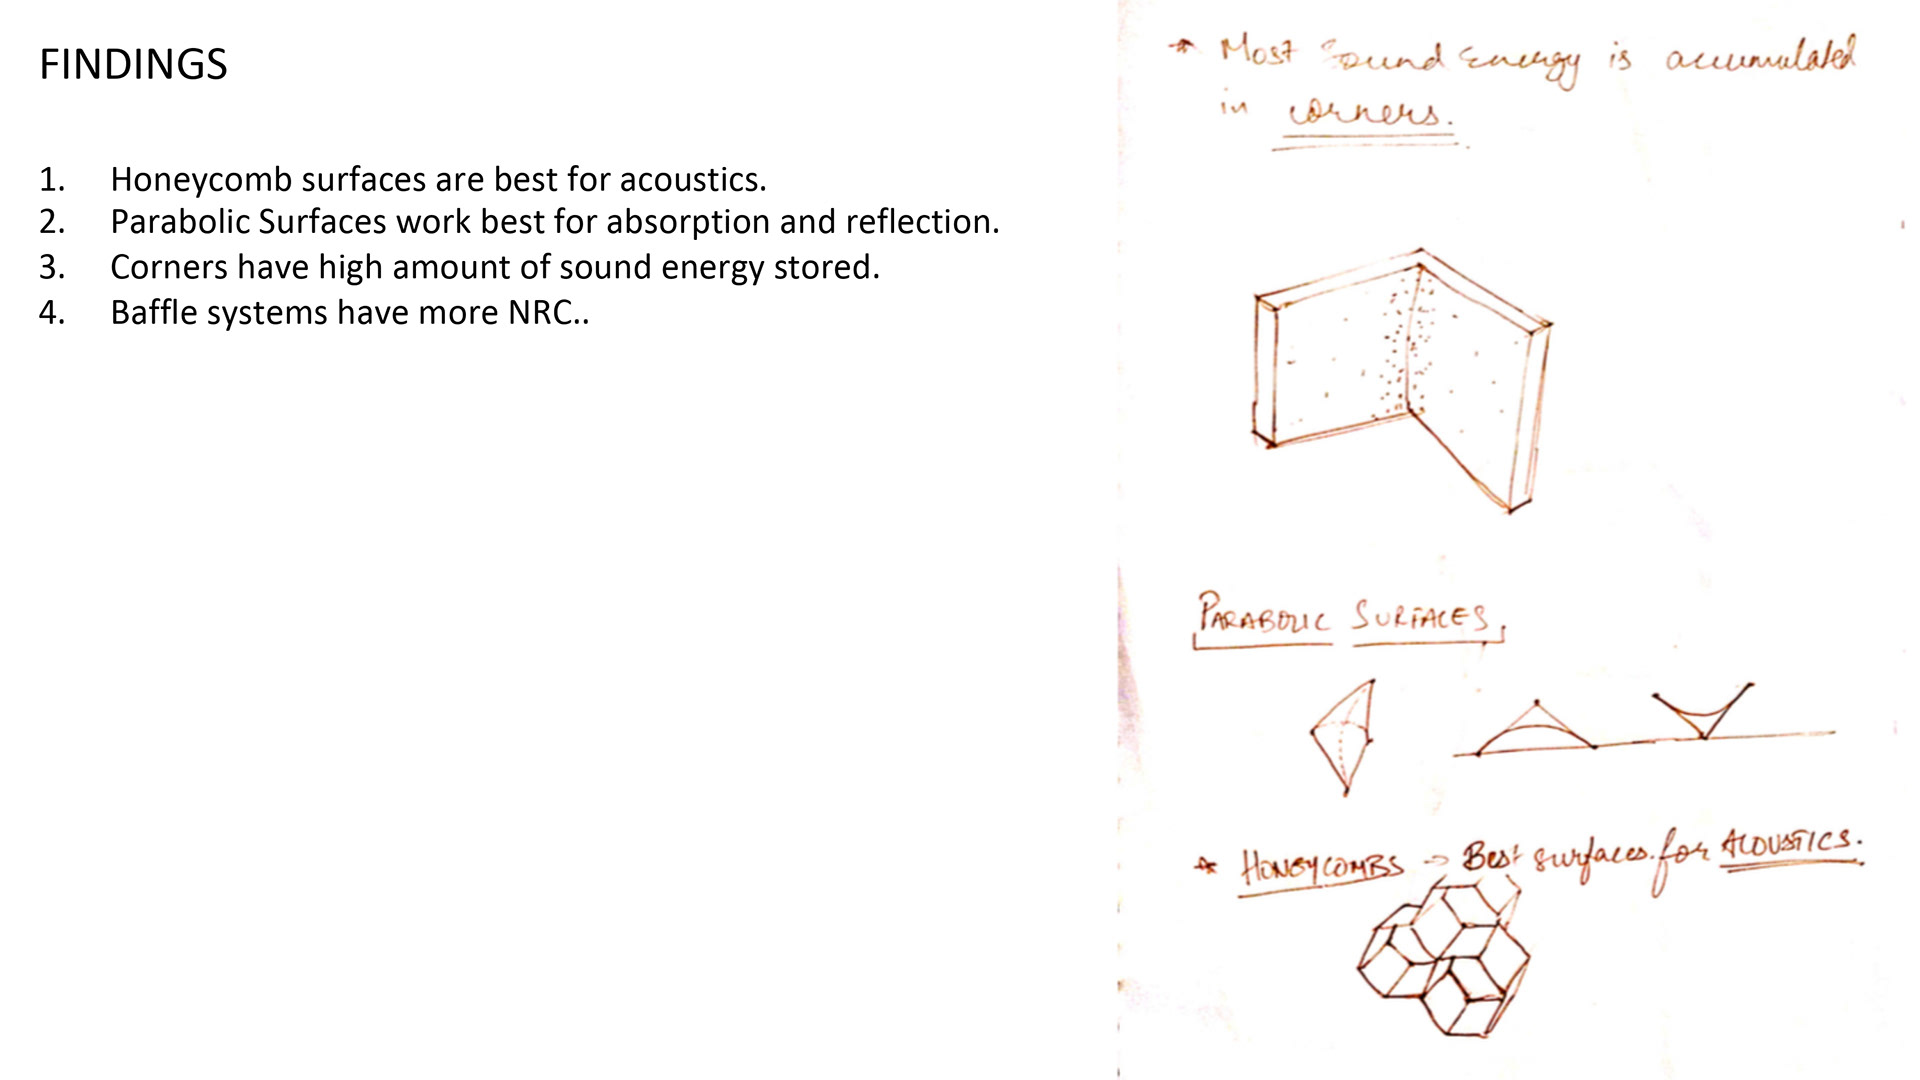 FINDINGS
1. Honeycomb surfaces are best for acoustics.
2. Parabolic Surfaces work best for absorption and reflection.
3. Corners have high amount of sound energy stored.
4. Baffle systems have more NRC..
* Most Sound Energy is accumulated
in corners.
PARABOLIC SURFACES.
* HONEYCOMBS → Best surfaces for ACOUSTICS.